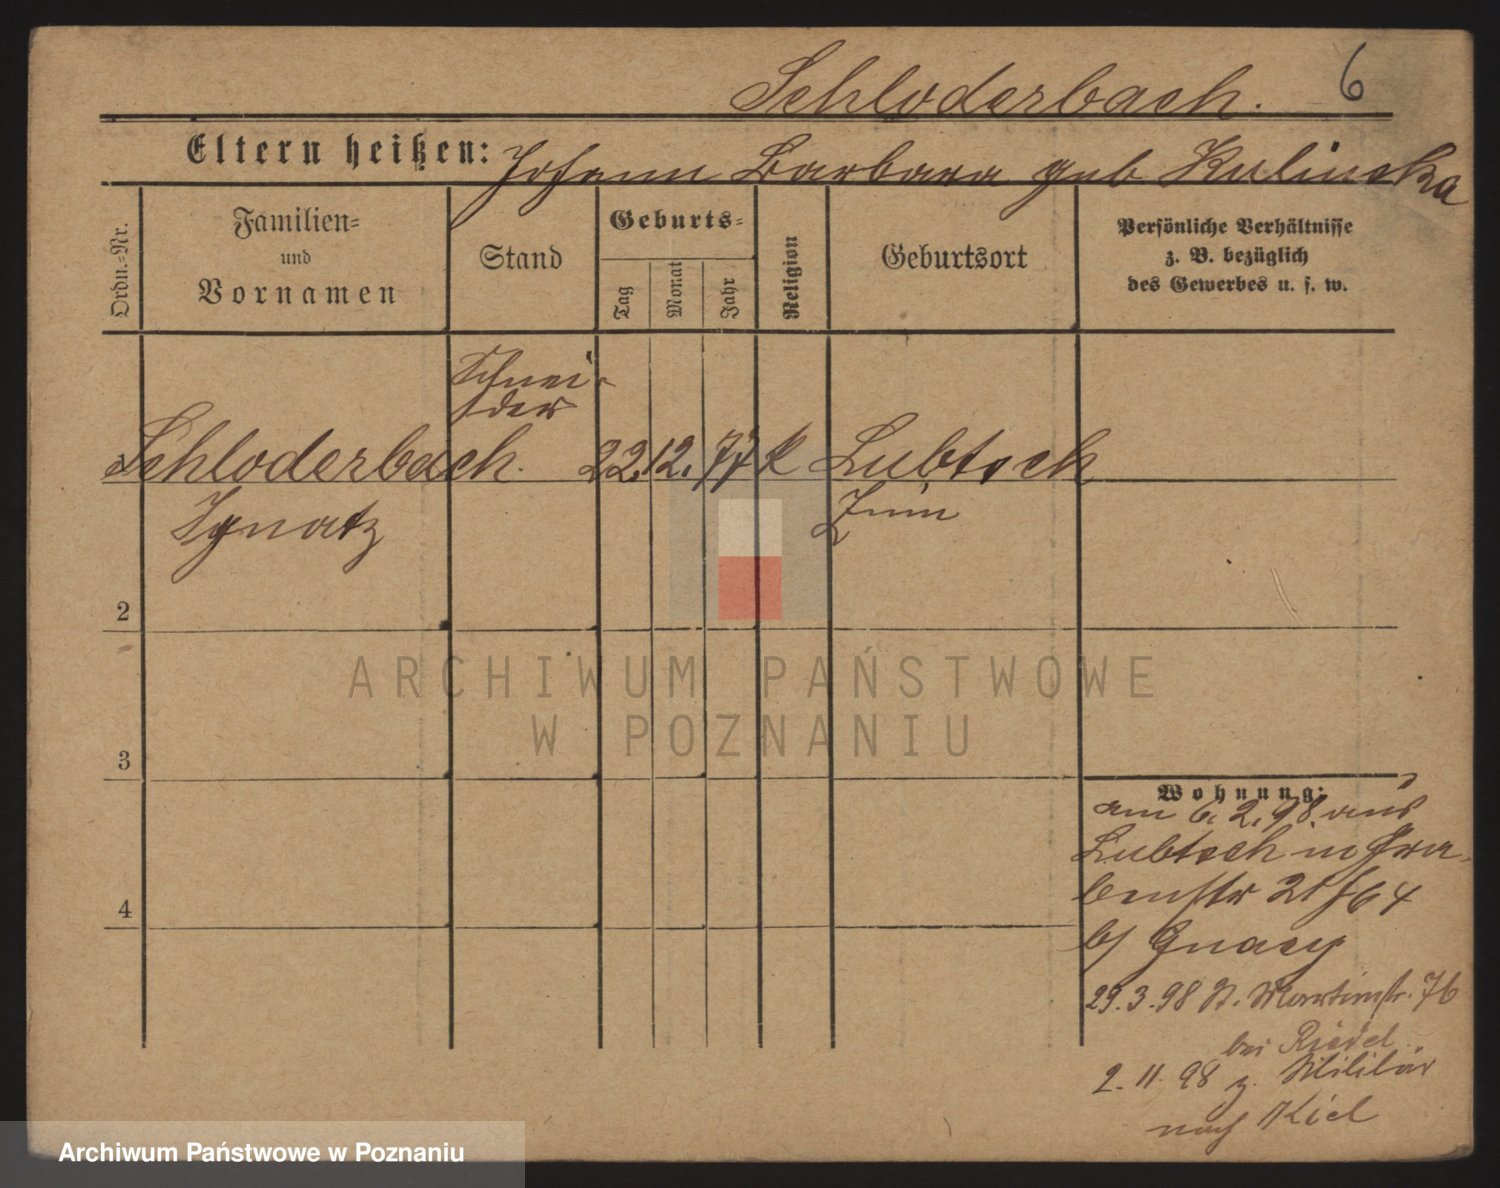 Schloderbach. 6
Eltern heißen: Johann Barbara geb Kulinska
Ordn.-Nr.
Familien-
und
Vornamen
Stand
Geburts-
Tag
Monat
Jahr
Religion
Geburtsort
Persönliche Verhältnisse
z. B. bezüglich
des Gewerbes u. s. w.
Schnei-
der
Schloderbach. 22. 12. 77 k Lubtsch
Ignatz Znin
2
3
4
Wohnung:
am 6. 2. 98. aus
Lubtsch n Gra-
benstr
b/ Gnacy
29.3.98 St. Martinstr. 76
bei Riedel
2. 11. 98 z. Militär
nach Kiel
ARCHIWUM PAŃSTWOWE
W POZNANIU
Archiwum Państwowe w Poznaniu